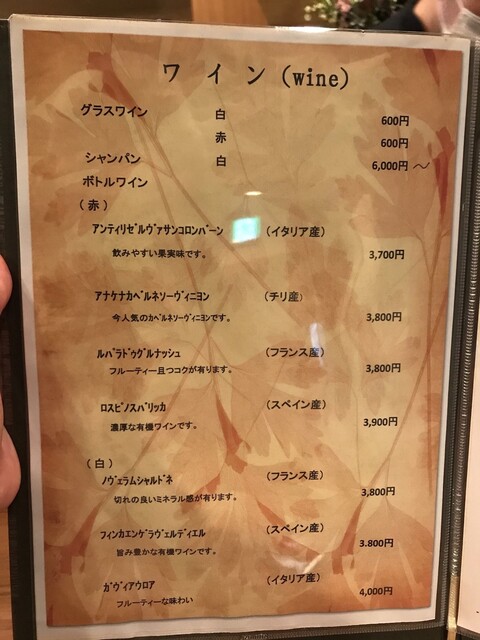 ワ イ ン (wine)
グラスワイン 白 600円
赤 600円
シャンパン 白 6,000円 ～
ボトルワイン
（赤）
アンティリゼルヴァサンコロンバーン （イタリア産）
飲みやすい果実味です。 3,700円
アナケナカベルネソーヴィニヨン （チリ産）
今人気のカベルネソーヴィニヨンです。 3,800円
ルパラドゥグルナッシュ （フランス産）
フルーティー且つコクが有ります。 3,800円
ロスピノスバリッカ （スペイン産）
濃厚な有機ワインです。 3,900円
（白）
ノヴェラムシャルドネ （フランス産）
切れの良いミネラル感が有ります。 3,800円
フィンカエンゲラヴェルディエル （スペイン産）
旨み豊かな有機ワインです。 3.800円
ガヴィアウロア （イタリア産）
フルーティーな味わい 4,000円